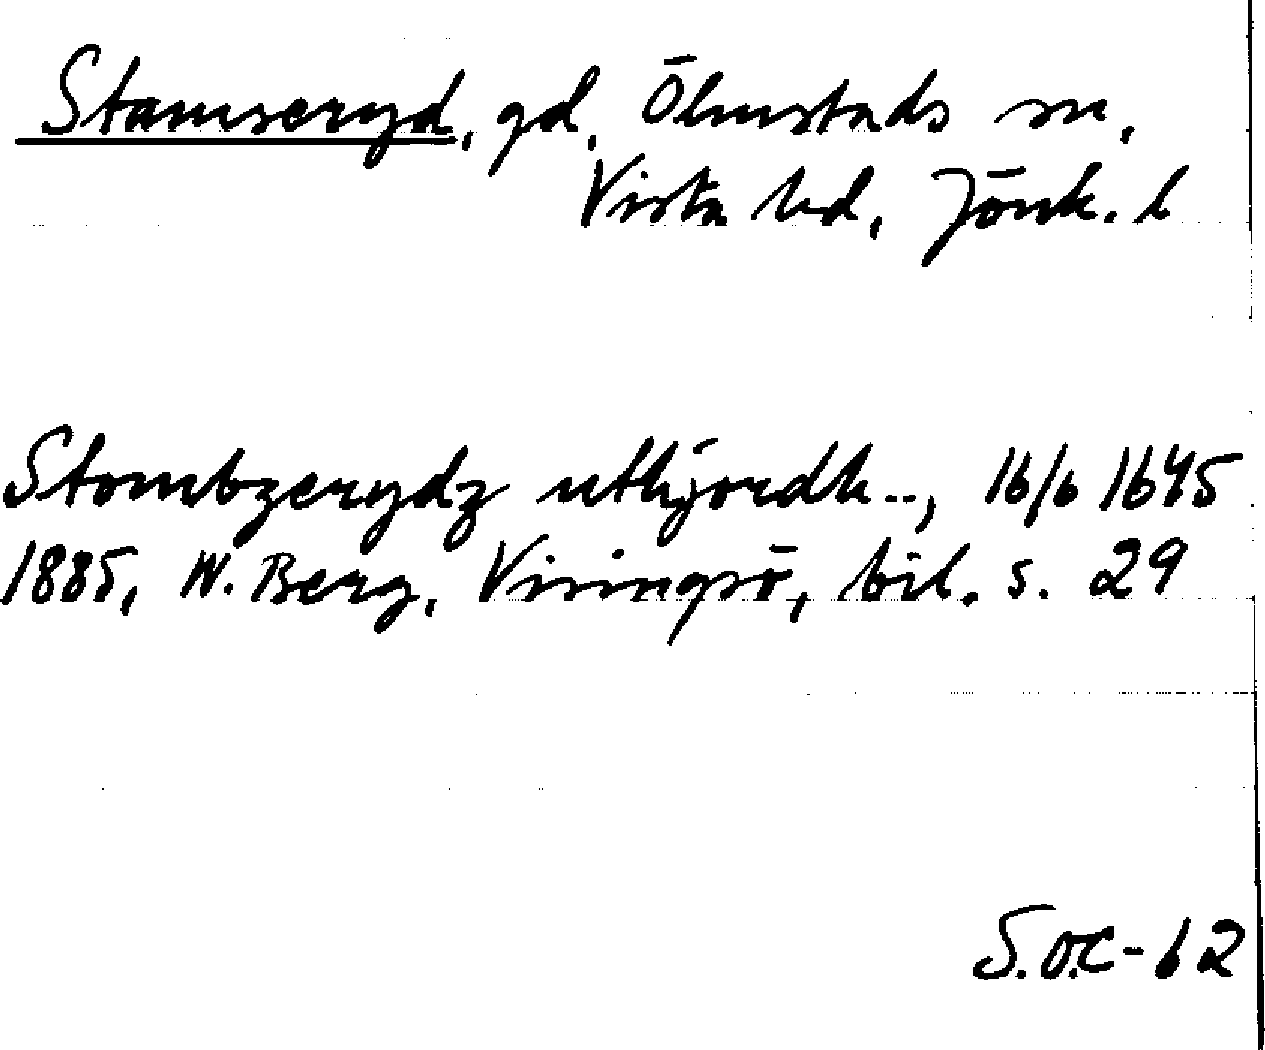 Stamseryd, gd, Ölmstads sn,
Vista hd, Jönk. l
Stombzerydz uthjordh.., 16/6 1645
1885, W. Berg, Visingsö, bil. s. 29
S.O.C-62